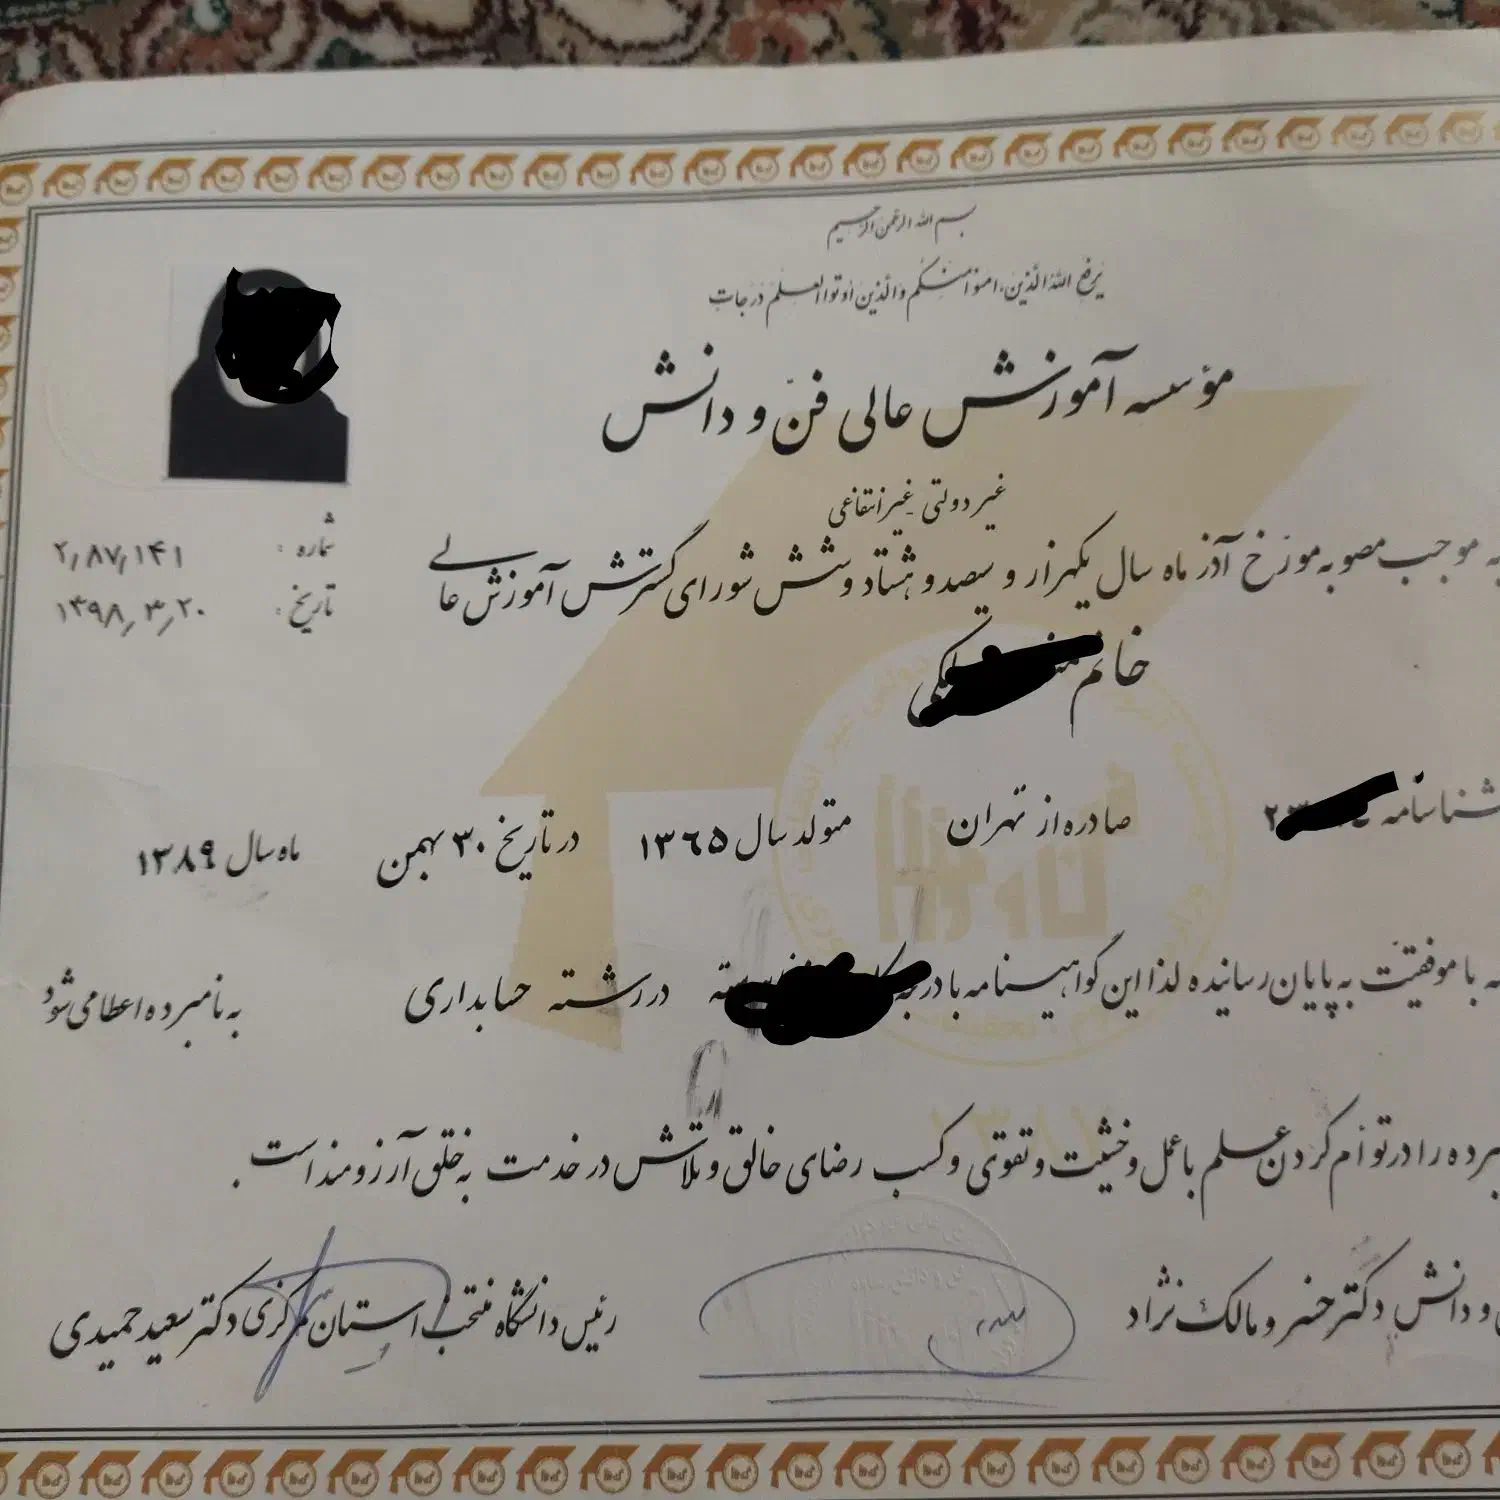 بسم الله الرحمن الرحیم
یرفع الله الذین امنوا منکم والذین اوتوا العلم درجات
مؤسسه آموزش عالی فن و دانش
غیر دولتی - غیرانتفاعی
شماره : ۲٫۸۷٫۱۴۱
تاریخ : ۱۳۹۸٫۳٫۲۰
به موجب مصوبه مورخ آذر ماه سال یکهزار و سیصد و هشتاد و شش شورای گسترش آموزش عالی
خانم
شناسنامه صادره از تهران متولد سال ۱۳۶۵ در تاریخ ۳۰ بهمن ماه سال ۱۳۸۹
با موفقیت به پایان رسانده لذا این گواهینامه با درجه در رشته حسابداری به نامبرده اعطا می شود
را در توأم کردن علم با عمل و خشیت و تقوی و کسب رضای خالق و تلاش در خدمت به خلق آرزومند است .
و دانش دکتر خسرو مالک نژاد رئیس دانشگاه منتخب استان مرکزی دکتر سعید حمیدی